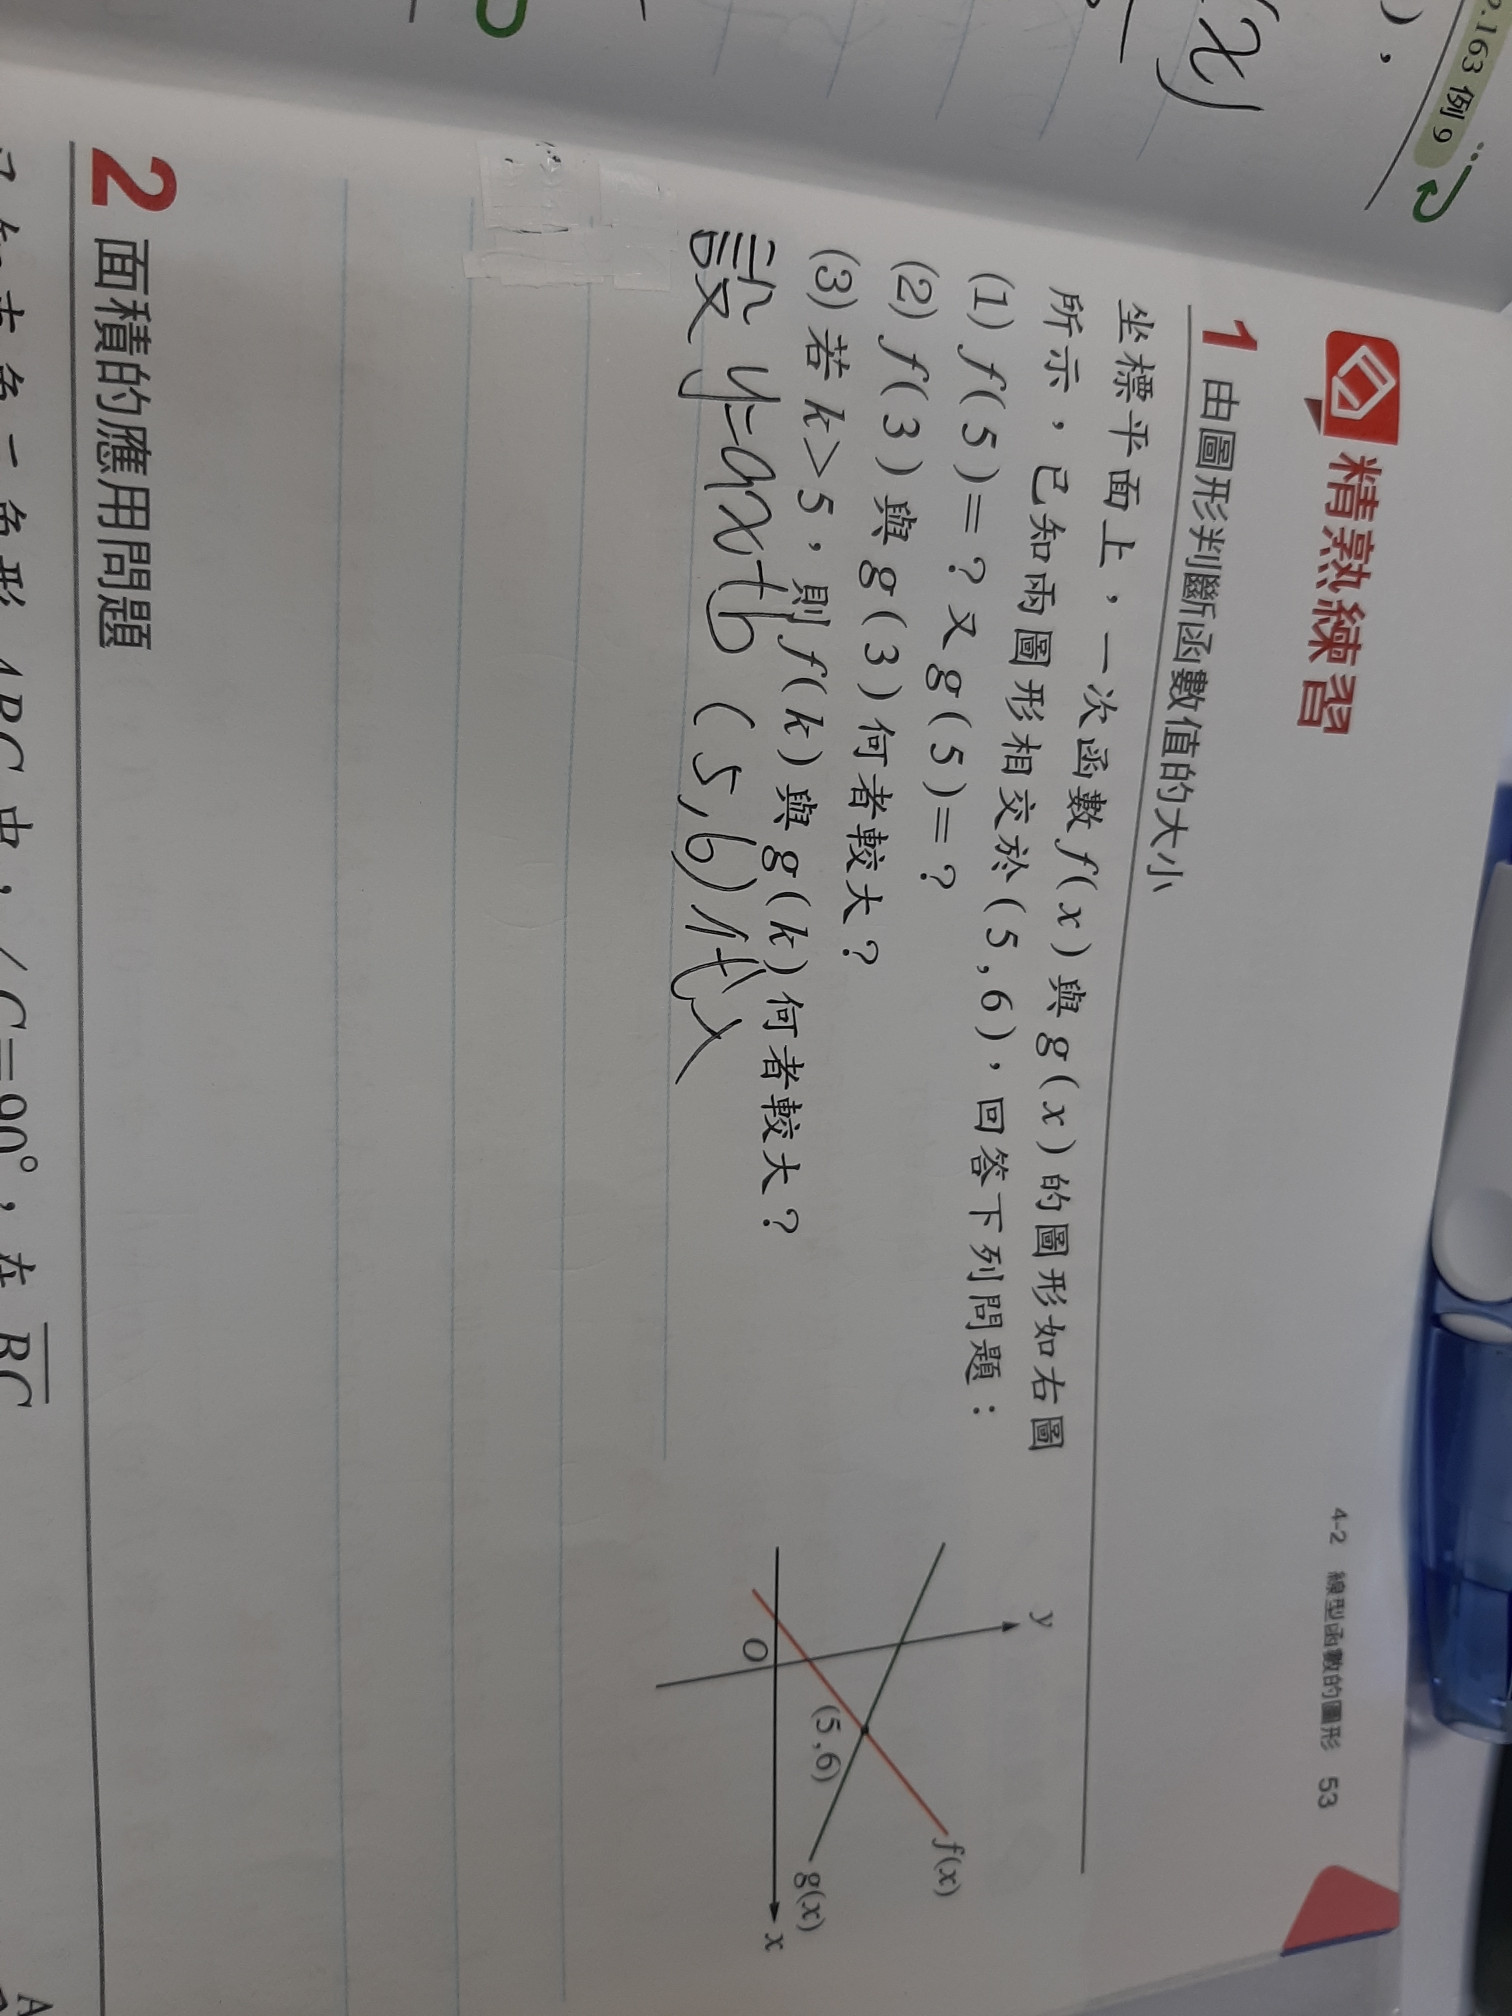 P.163 例 9
),
(x)
4-2 線型函數的圖形 53
精熟練習
1 由圖形判斷函數值的大小
坐標平面上，一次函數 f(x) 與 g(x) 的圖形如右圖
所示，已知兩圖形相交於(5,6)，回答下列問題：
(1) f(5)=？又 g(5)=？
(2) f(3) 與 g(3) 何者較大？
(3) 若 k>5，則 f(k) 與 g(k) 何者較大？
設 y=ax+b (5,6)代入
y
f(x)
(5,6)
g(x)
O
x
2 面積的應用問題
角三角形 ABC 中，∠C=90°，在 BC
A